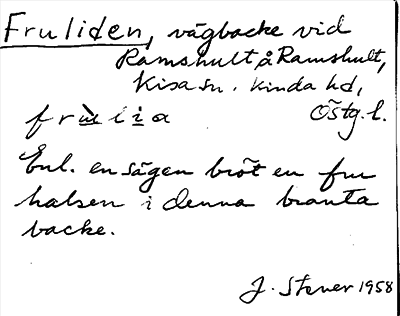 Fruliden, vägbacke vid
Ramshult å Ramshult,
Kisa sn. Kinda hd,
Östg. l.
frùlia
Enl. en sägen bröt en fru
halsen i denna branta
backe.
J. Stener 1958